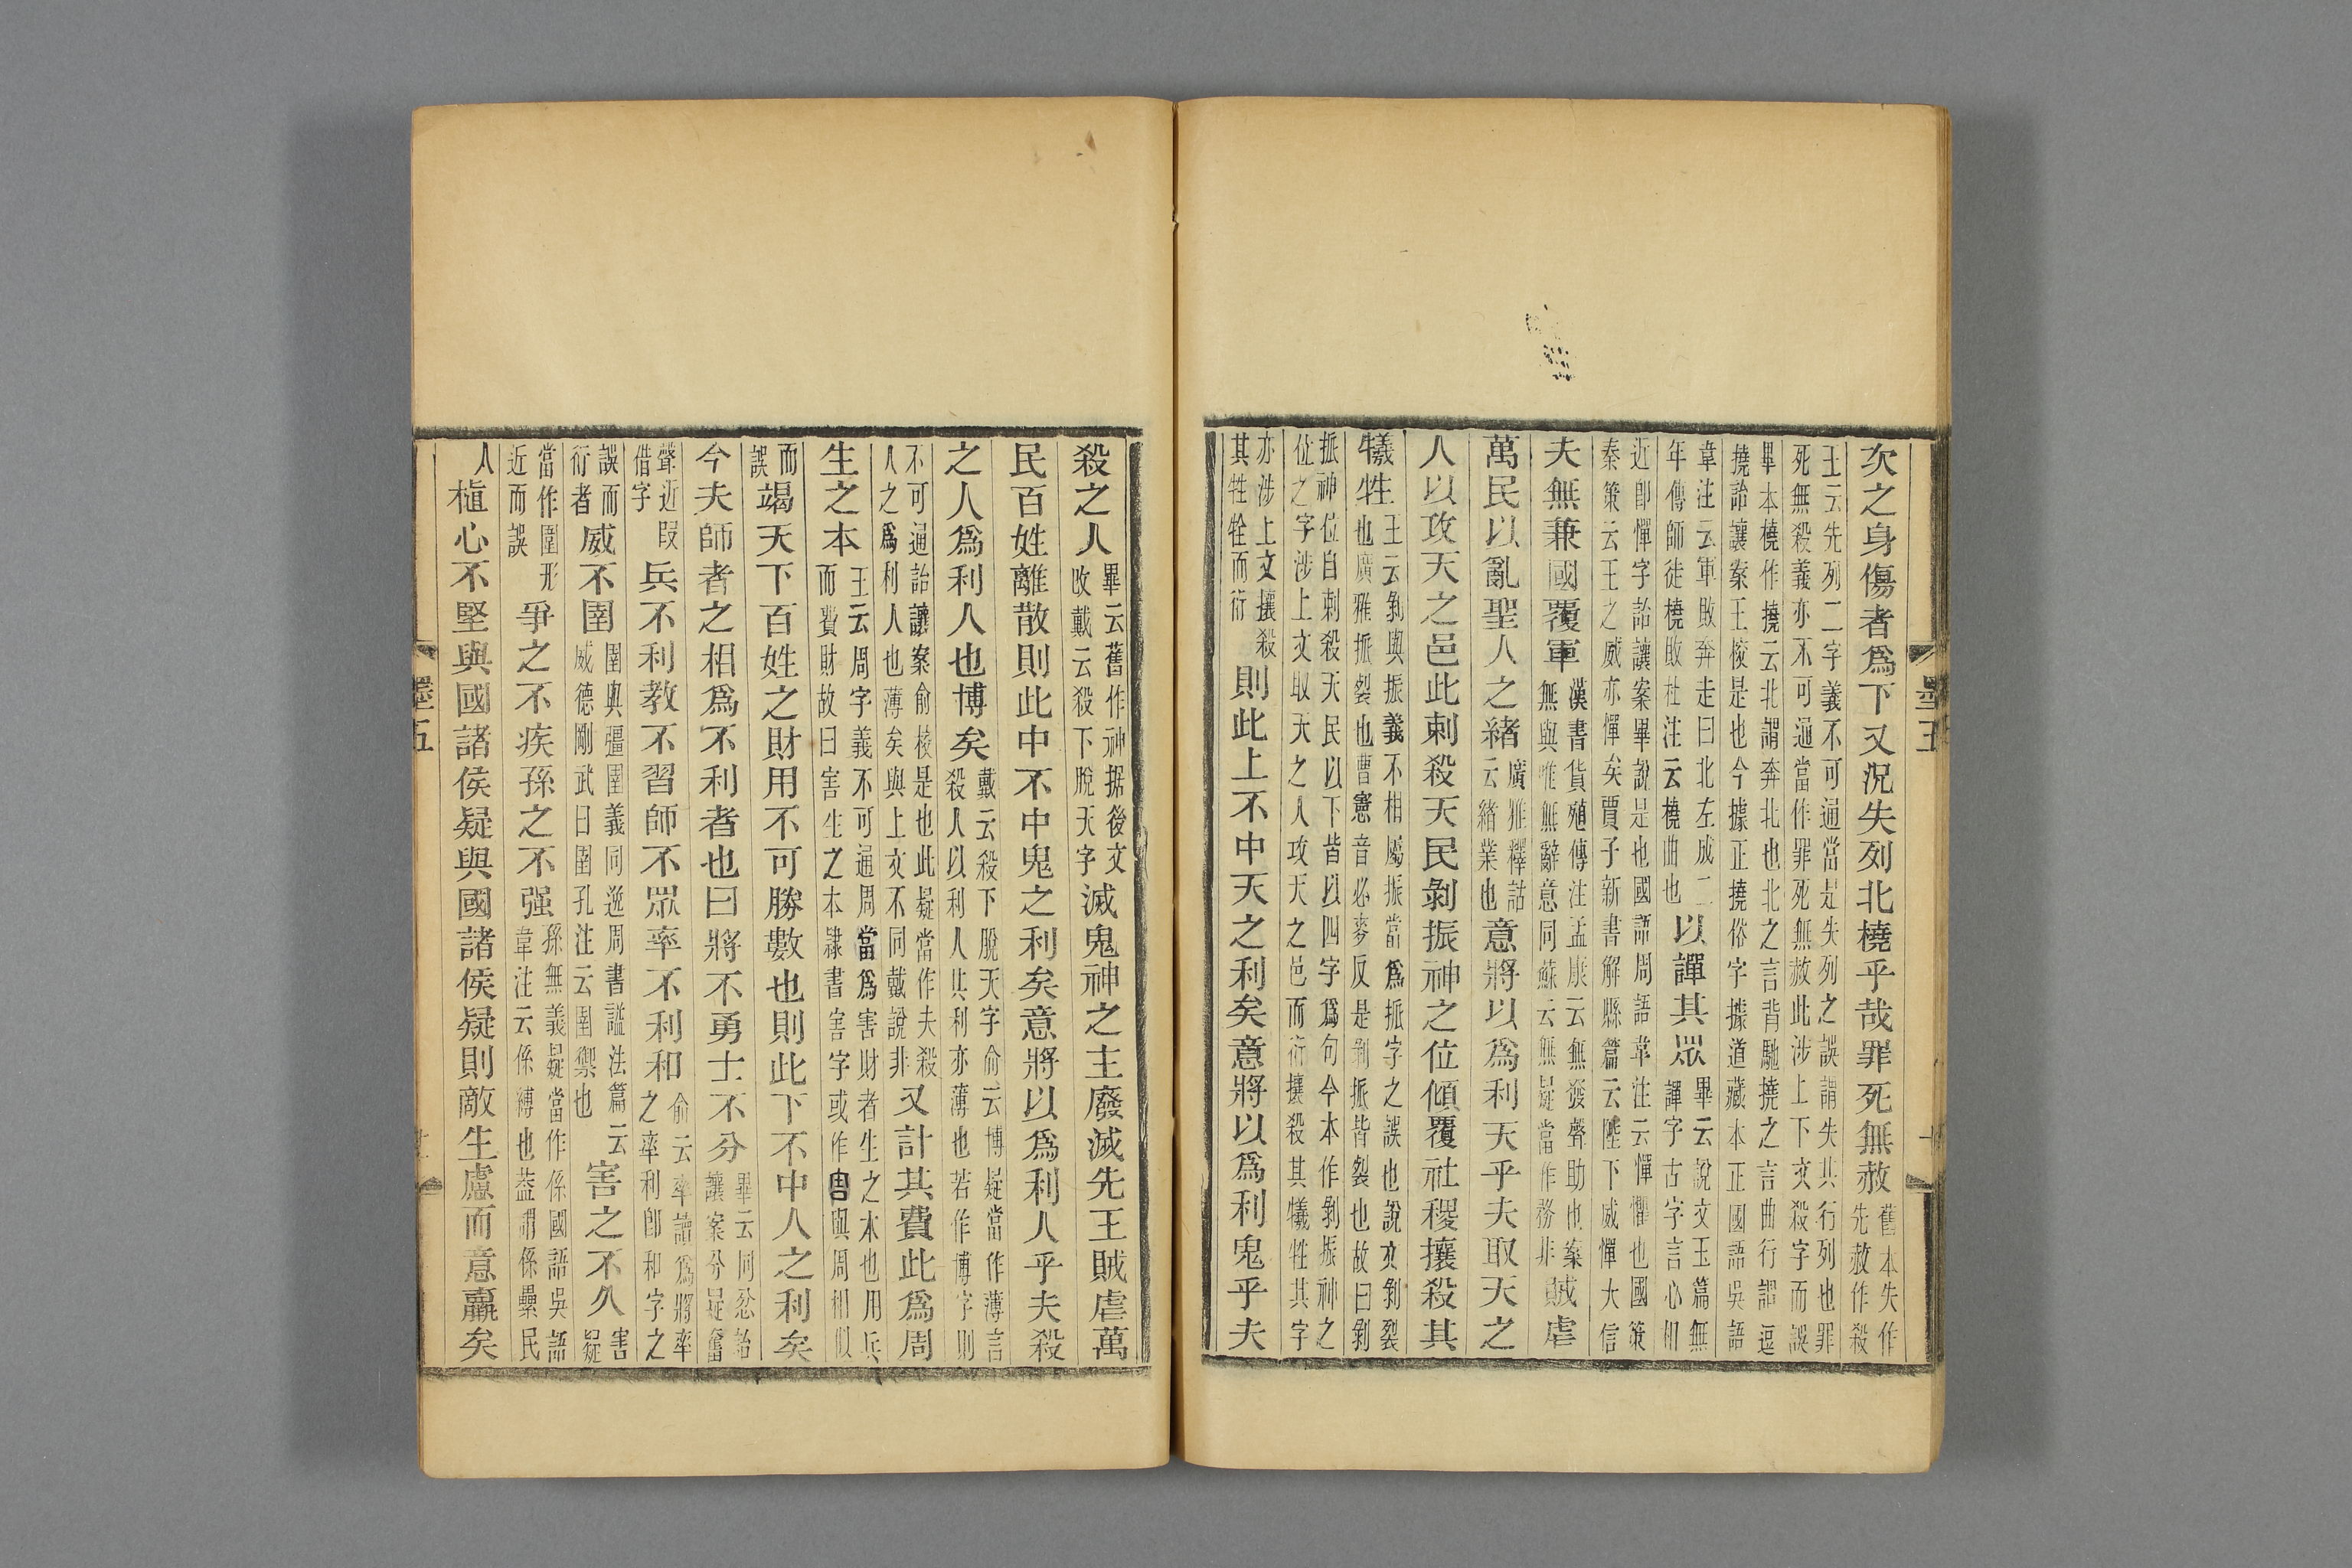 次之身傷者爲下又況失列北橈乎哉罪死無赦舊本失作先赦作殺
王云先列二字義不可通當是失列之誤謂失其行列也罪死無殺義亦不可通當作罪死無赦此涉上下文殺字而誤
畢本橈作撓云北謂奔北也北之言背馳撓之言曲行謂逗撓詒讓案王校是也今據正撓俗字據道藏本正國語吳語
韋注云軍敗奔走曰北左成二年傳師徒橈敗杜注云橈曲也以譂其眾畢云說文玉篇無譂字古字言心相
近卽憚字詒讓案畢說是也國語周語韋注云憚懼也國策秦策云王之威亦憚矣賈子新書解縣篇云陛下威憚大信
夫無兼國覆軍漢書貨殖傳注孟康云無發聲助也案無與唯無辭意同蘇云無疑當作務非賊虐
萬民以亂聖人之緒廣雅釋詁云緒業也意將以爲利天乎夫取天之
人以攻天之邑此刺殺天民剝振神之位傾覆社稷攘殺其
犧牲王云剝與振義不相屬振當爲挀字之誤也說文剝裂也廣雅挀裂也曹憲音必麥反是剝挀皆裂也故曰剝
挀神位自刺殺天民以下皆以四字爲句今本作剝振神之位之字涉上文取天之人攻天之邑而衍攘殺其犧牲其字
亦涉上文攘殺其牲牷而衍則此上不中天之利矣意將以爲利鬼乎夫
殺之人畢云舊作神据後文改戴云殺下脫天字滅鬼神之主廢滅先王賊虐萬
民百姓離散則此中不中鬼之利矣意將以爲利人乎夫殺
之人爲利人也博矣戴云殺下脫天字俞云博疑當作薄言殺人以利人其利亦薄也若作博字則
不可通詒讓案俞校是也此疑當作夫殺人之爲利人也薄矣與上文不同戴說非又計其費此爲周
生之本王云周字義不可通周當爲害財者生之本也用兵而費財故曰害生之本隸書害字或作周與周相似
而誤竭天下百姓之財用不可勝數也則此下不中人之利矣
今夫師者之相爲不利者也曰將不勇士不分畢云同忿詒讓案分疑奮
聲近叚借字兵不利教不習師不眾率不利和俞云率讀爲將率之率利卽和字之
誤而衍者威不圉圉與彊圉義同逸周書謚法篇云威德剛武曰圉孔注云圉禦也害之不久害疑
當作圍形近而誤爭之不疾孫之不强孫無義疑當作係國語吳語韋注云係縛也蓋謂係纍民
人植心不堅與國諸侯疑與國諸侯疑則敵生慮而意羸矣
墨五
墨五